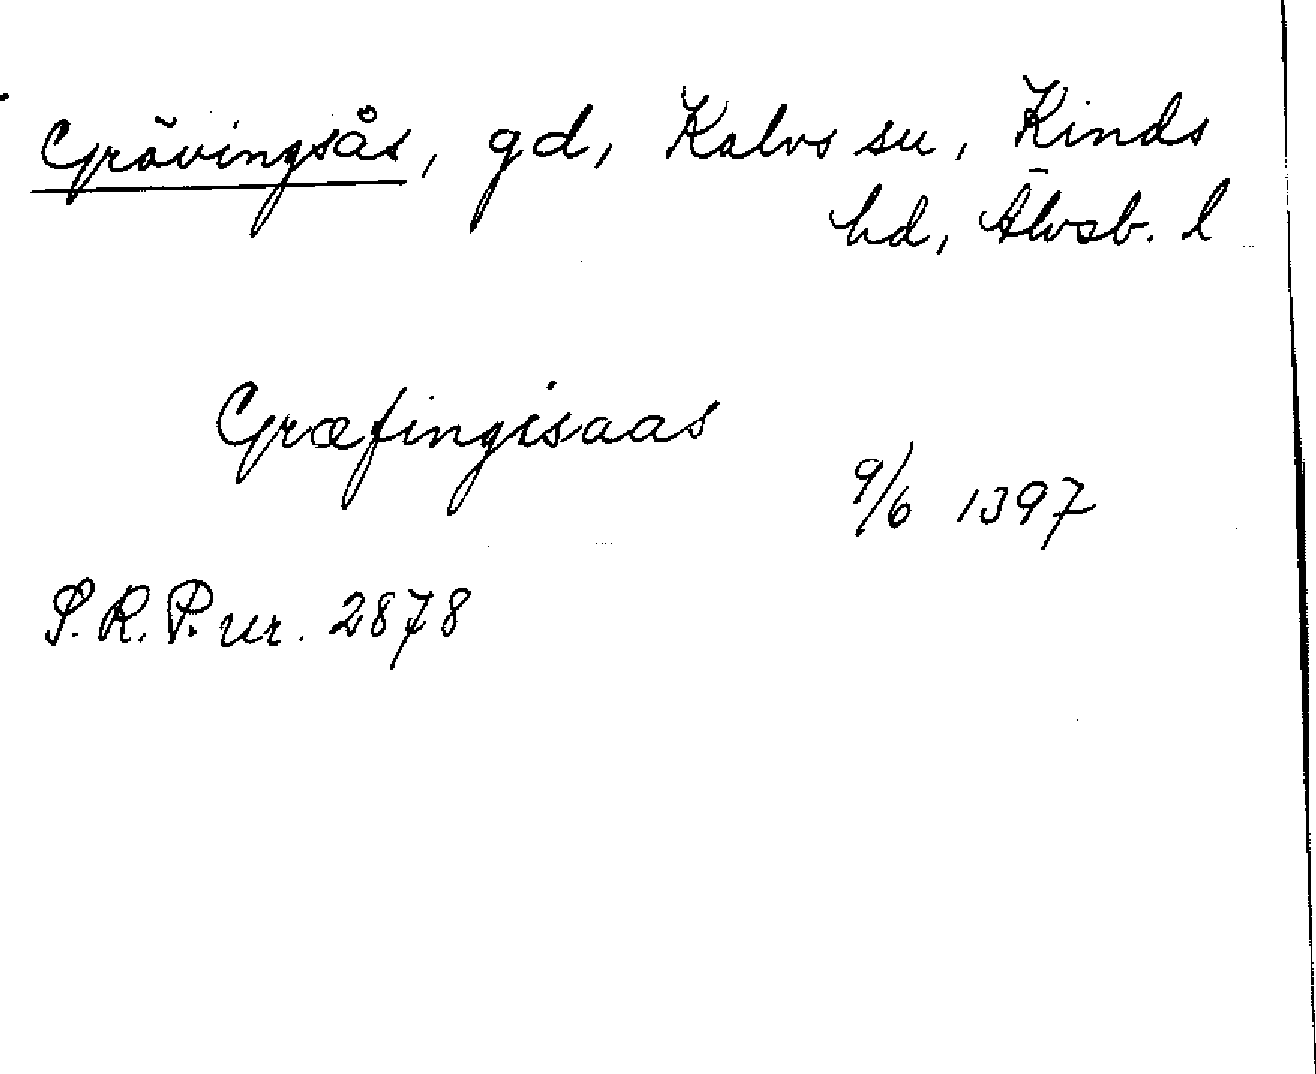 Grävingsås, gd, Kalvs sn, Kinds
hd, Älvsb. l
Græfingisaas
9/6 1397
S.R.P. nr. 2878